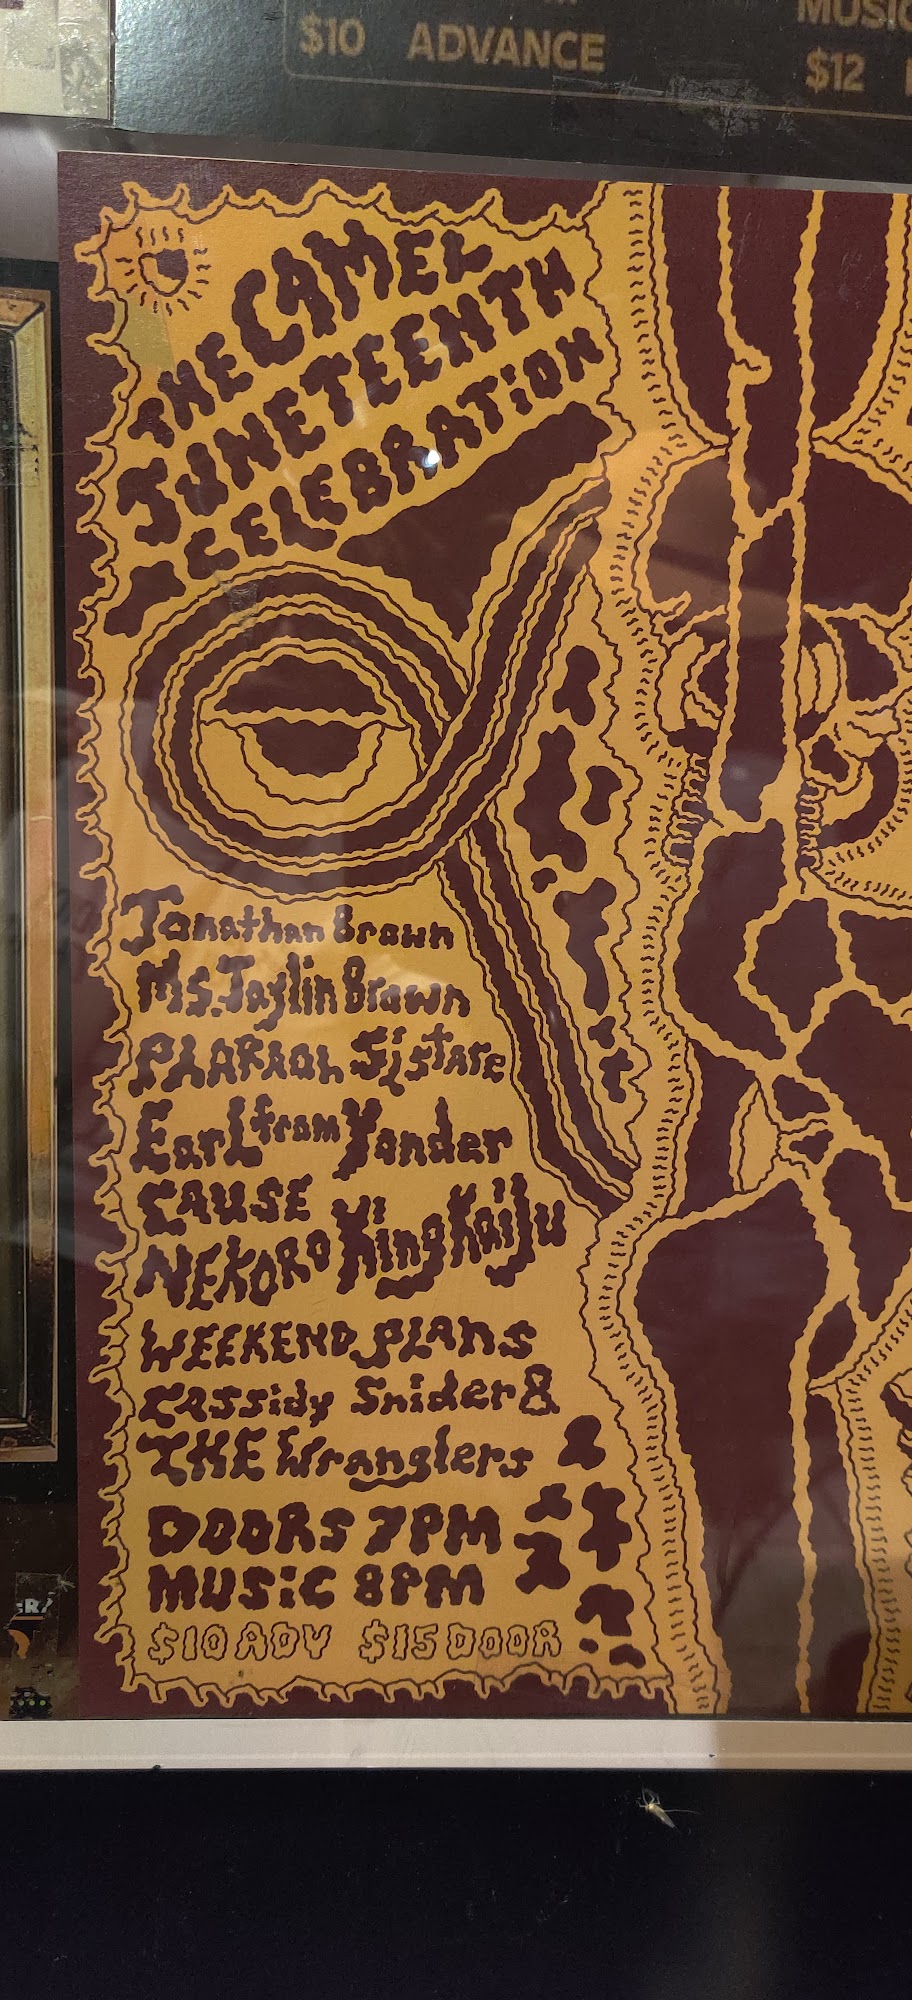 $10 ADVANCE
$12
THE CAMEL
JUNETEENTH
CELEBRATION
Jonathan Brown
Ms. Jaylin Brown
PhARAOh SiStARe
EarL from Yonder
CAUSE
NEKORO King Kaiju
WEEKEND PLANS
CASSidy Snider &
THE Wranglers
DOORS 7PM
MUSiC 8PM
$10 ADV $15 DOOR